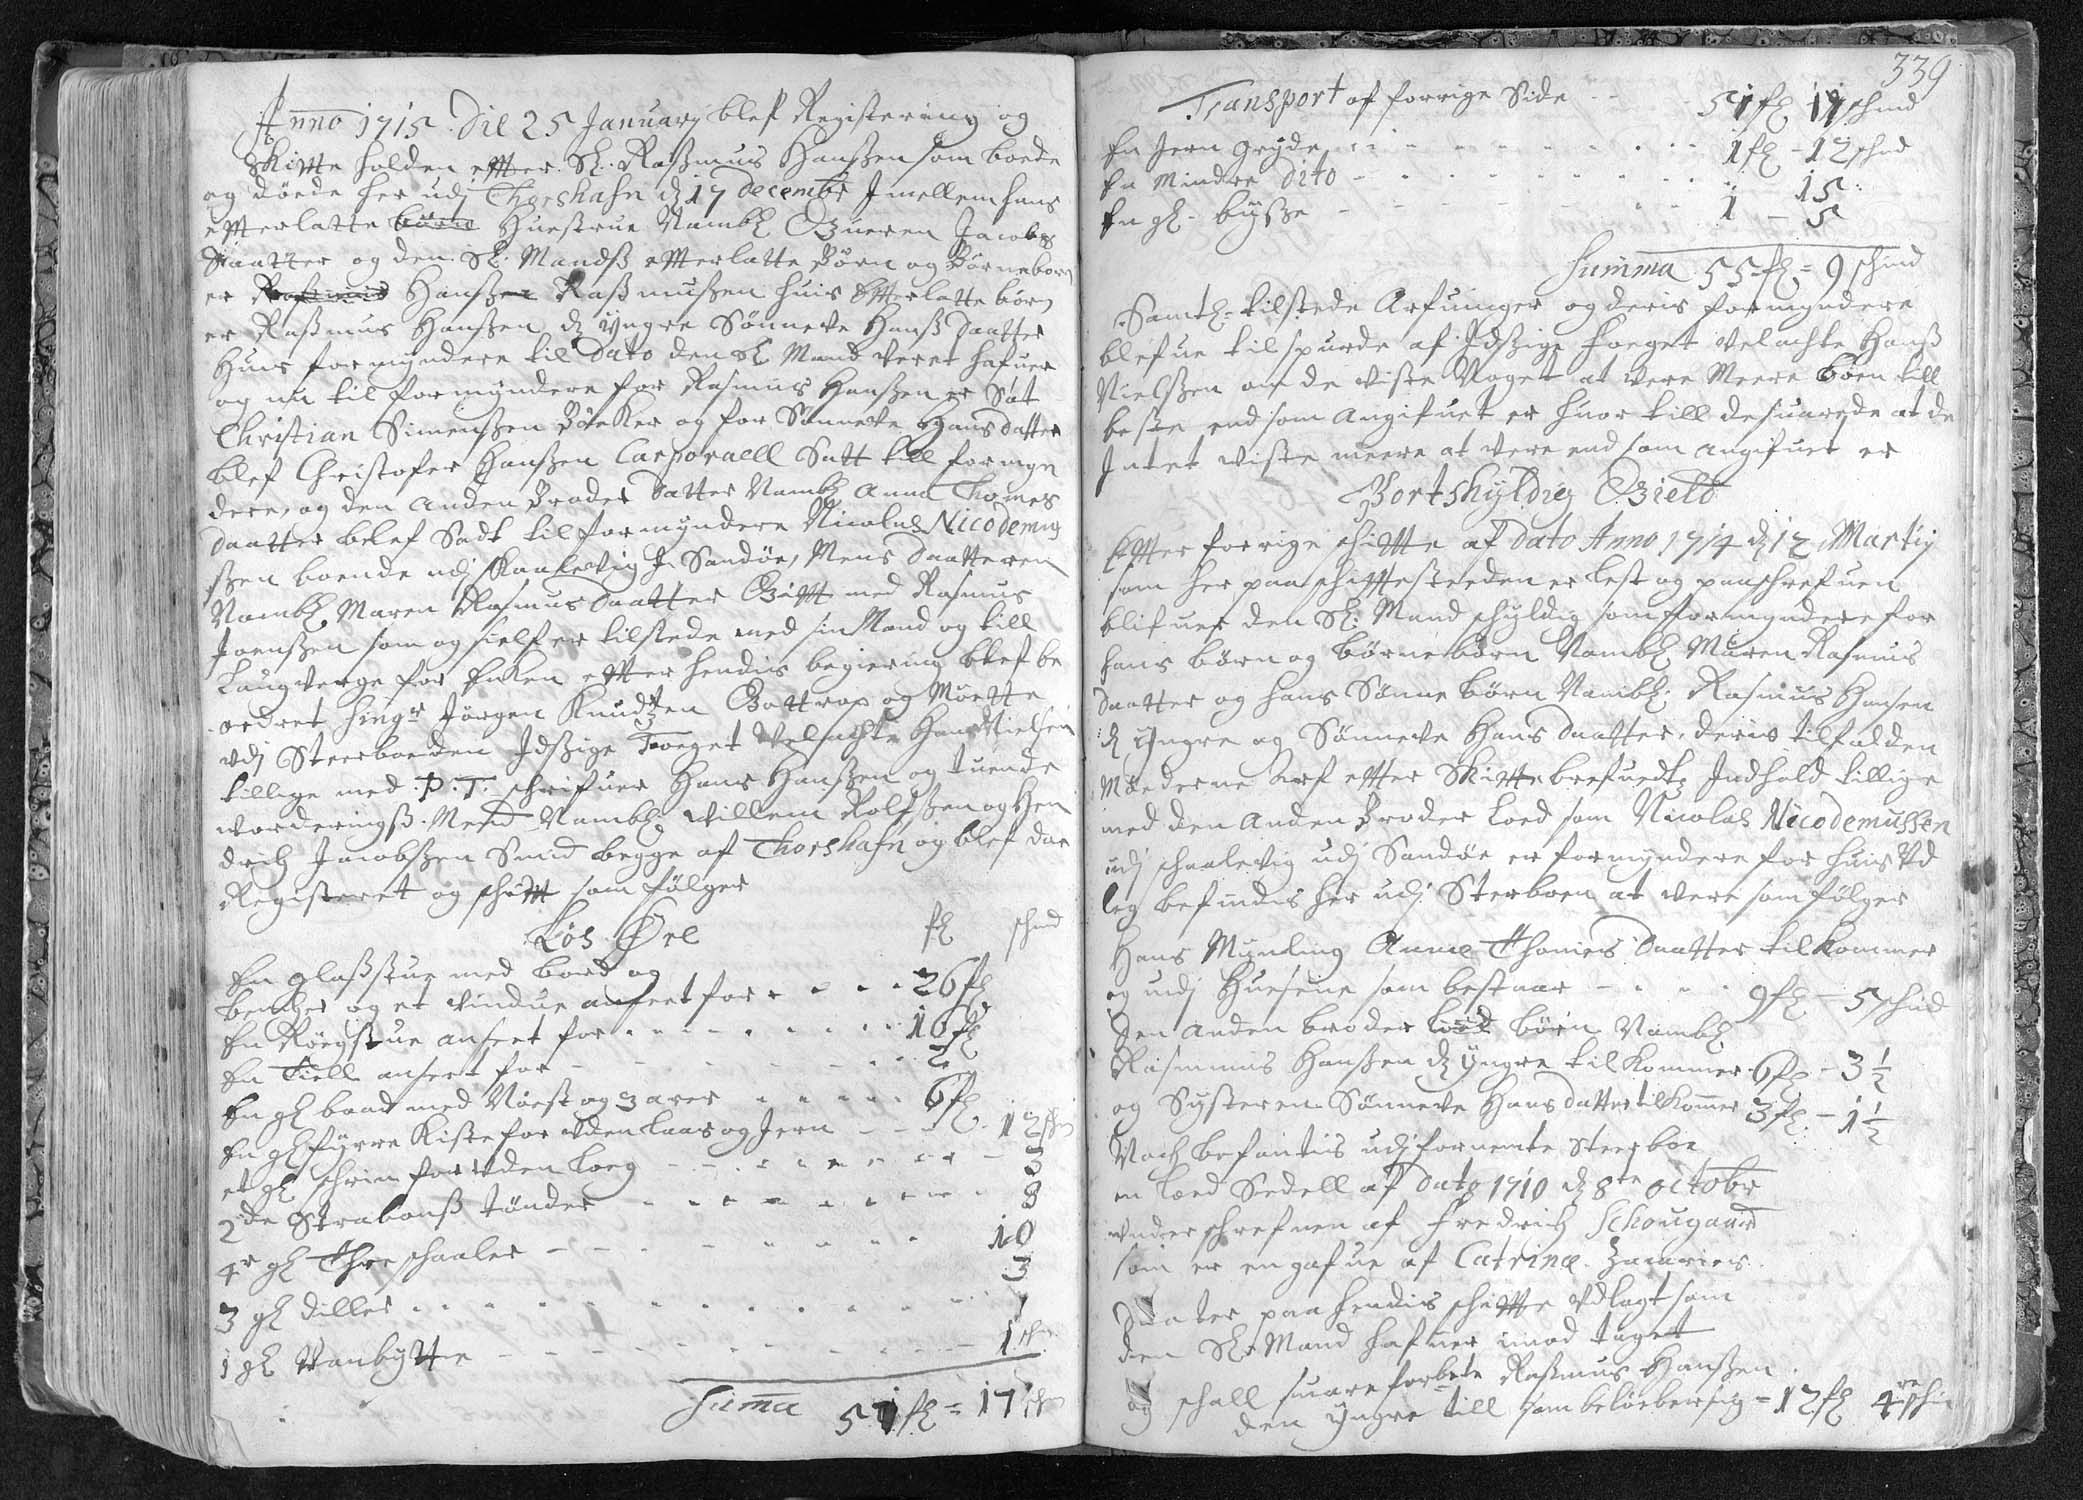 Anno 1715. Die 25 Januarij blef Registering og
Skiffte holden effter Sl. Raßmus Hanßen som boede
og döede her udj Thorshafn d 17 decembr Jmellem hans
effterlatte Huestrue Nambl Gueren Jacobs
Daatter og den Sl. Mandß effterlatte Börn og Börneborn
er Hanß Raßmußen huis Effterlatte börn
er Raßmus Hanßen d yngre Sönneve Hanß Daatter
Huis formyndere til Dato den Sl Mand veret hafuer
og nu til formyndere for Rasmus Hanßen er Sat
Christian Simenßen Böeker og for Sönneve Hans datter
blef Christofer Hanßen Carporaell Satt till formyn
dere, og den Anden Broder Datter Nambl Anna Thomes
Daatter belef Sadt til formyndere Nicolas Nicodemus
ßen boende udj Skaalevig J Sandöe, Mens Daatteren
Nambl Maren Rasmus Daatter Gifft med Rasmus
Joenßen som og sielf er tilstede med sin Mand og till
Laugverge for Enken effter hendis begiering blef be
ordret Sing.r Jörgen Knudtzen Gattrop og Mötte
vdj Steerboeden Jdßige Foeget Velachte Hans Nielsen
tillige med P.T. schrifuer Hans Hanßen og tuende
vorderingß Mend Nambl. Willem Rolfßen og Hen
drich Jacobßen Smid begge af Thorshafn og blef da
Registeret og schifft som fölger
Lös Öre fl schind
En glaßstue med bord og
bencher og et vindue anseet for 26 fl
En Röegstue anseet for 16 fl
En Kiell anseet for 2
En gl baad med Nöest og 3 arer 6 fl
En gl fyrre Kiste foruden Laas og Jern 12 sch
et gl schrin foruden Loeg 3
2de Strabonß tönder 8
4r gl Thre schaaler 10
3 gl diller 3
1 gl Vanbytte 1 sch
Suma 51 fl = 17 sch
339
Transport af forrige Side 51 fl 17 schind
En Jern Gryde 1 fl - 12 schind
En Mindre dito 1 - 15
En gl. bysse 1 - 5
Summa 55 fl = 9 schind
Samtl. tilstede Arfuinger og deris formyndere
blefue tilspurde af Jdßige foeget Velachte Hanß
Nielßen om de viste Noget at vere Meere Boen till
beste end som Angifuet er huor till de suarede at de
Jntet viste meere at vere end som angifuet er
Bortskyldig Gield
Effter forrige schiffte af Dato Anno 1714 d 12 Martij
som her paa schifftesteeden er lest og paaschrefuen
blifuer den Sl. Mand schyldig som formyndere for
hans börn og börnebörn Nambl Maren Rasmus
Daatter og hans Sönne börn Nambl. Rasmus Hansen
d yngre og Sönneve Hans Daatter, deris tilfalden
Möderne Arf effter Skifftebrefuedts Jndhold tillige
med den Anden Broder Loed som Nicolas Nicodemussen
udj schaalevig udj Sandöe er formyndere for huis Vd
leg befindis her udj Sterboen at vere som fölger
Hans Mynling Anna Thomes Daatter tilkommer
og udj Huusene som bestaar 9 fl - 5 schind
Den anden broder börn Nambl
Rasmus Hanßen d yngre tilkommer 6 fl - 3 1/2
og Systeren Sönneve Hans datter tilkommer 3 fl - 1 1/2
Noch befantis udj fornemte Steerboe
en Loed Sedell af Dato 1710 d 8te octobr
underschrefuen af Fredrich Schougaard
som er en gafue af Catrina Zacaries
Daater paa hendis schiffte Vdlagt som
den Sl. Mand hafuer imod taget
og schall suare forbete Raßmus Hanßen
den yngre till som belöeber sig = 12 fl 4re schin